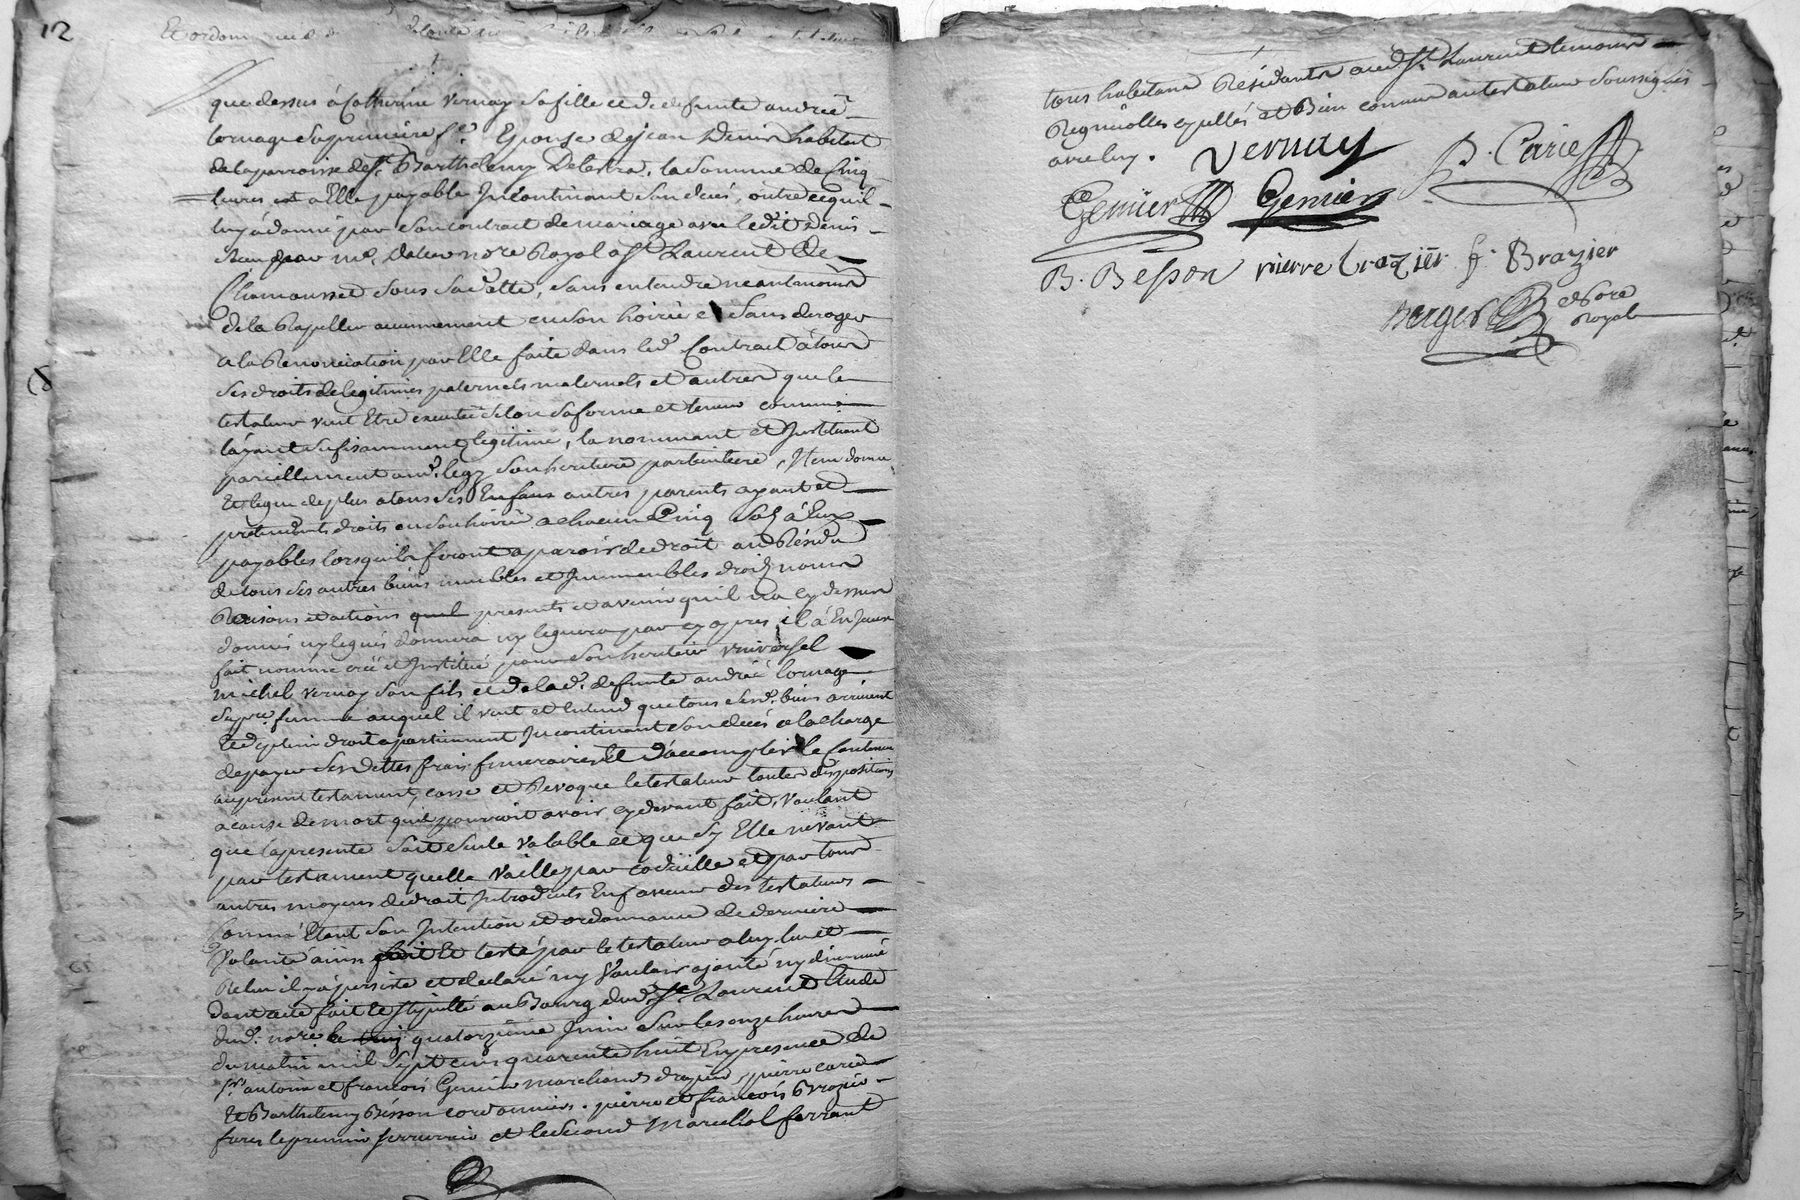 12
Et ordon
que dessus à Catherine Vernay sa fille et de defunte andrée
Lornage sa premiere fe Epouse de jean Denis habitant
de la parroisse de St Barthelemy Delestra, la somme de Cinq
livres à Elle payable Incontinant son decès, outre ce quil
luy à donné par son contrat de mariage avec ledit Denis
Reçu par Me no.re Royal a St Laurent De
Chamousset sous sa datte, sans entendre neantmoins
de la Rapeller aucunement en son hoirie et sans deroger
a la Renonciation par Elle faite dans led. Contract à tous
ses droits de legitimes paternels maternels et autres que le
testateur veut Etre executée selon sa forme et teneur comme
layant sufisamment legitimé, la nommant et Instituant
pareillement aud. legz son heritiere particuliere, Item donne
Et legue de plus a tous ses Enfans autres parents ayant et
pretendants droits en son hoirie a chacun Cinq solz à Eux
payables lorsquils feront aparoir de droit au Résidu
de tous ses autres biens meubles et Immeubles droitz noms
Raisons et actions presents et avenir quil na cy dessus
donnés ny legués donnera ny leguera par cy apres il à En Iceux
fait nommé créé et Institué pour son heritier universel
michel Vernay son fils et de lad. defunte andréé Lornage
sa pre. femme auquel il veut et Entend que tous sesd. biens arrivent
Et de plein droit apartiennent Incontinant son decès a la charge
de payer ses dettes frais funeraires Et d'accomplir le Contenu
au present testament, casse et Revoque le testateur toutes dispositions
a cause de mort quil pourroit avoir cy devant fait, Voulant
que la presente soit seule valable et que sy Elle ne vaut
par testament quelle vaille par codicille et par tous
autres moyens de droit Introduits En faveur des testateurs
Comme Etant son Intention et ordonnance de derniere
Volonté ainsi fait Et testé par le testateur a luy lu et
Relu il y à persisté et declaré ny Vouloir ajouté ny diminué
dont acte fait et stipullé au Bourg dud. St Laurent Etude
dud. no.re quatorzieme Juin sur les onze heures
du matin mil sept cens quarente huit En presence de
Srs antoine et francois Genier marchands drapiers, pierre carie
Et Barthelemy Besson cordonniers, pierre et francois Brazier
freres le premier serrurier et le second Marechal ferrant
tous habitans Résidants aud. St Laurent temoins
Requis Et Bien connus au testateur Soussignés
avec luy. Vernay P. Carie
Genier Genier
B. Besson pierre brazier f. Brazier
Berger No.re
Royal